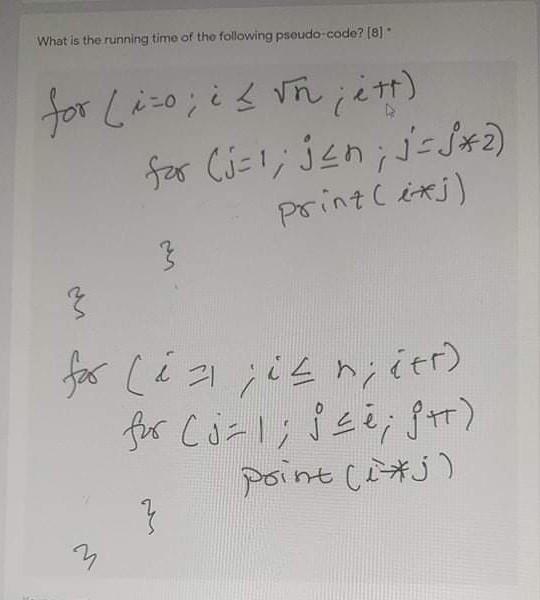 What is the running time of the following pseudo-code? [8] *
for (i=0; i ≤ √n ; i++)
for (j=1; j≤n ; j=j*2)
print( i*j)
}
}
for (i =1 ; i≤ n; i++)
for (j=1; j≤i; j++)
print (i*j)
}
}